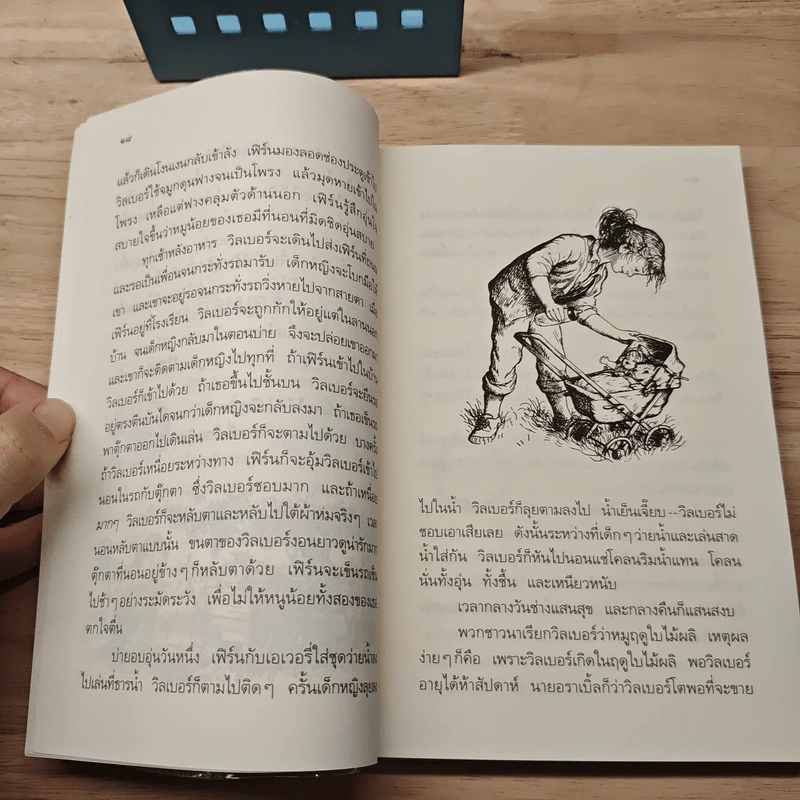 ๑๘
แล้วก็เดินโงนเงนกลับเข้าลัง เฟิร์นมองลอดช่องประตูเข้าไป
วิลเบอร์ใช้จมูกดุนฟางจนเป็นโพรง แล้วมุดหายเข้าไปใน
โพรง เหลือแต่ฟางคลุมตัวด้านนอก เฟิร์นรู้สึกอุ่นใจ
สบายใจขึ้นว่าหมูน้อยของเธอมีที่นอนที่มิดชิดอุ่นสบาย
ทุกเช้าหลังอาหาร วิลเบอร์จะเดินไปส่งเฟิร์นที่ถนน
และรอเป็นเพื่อนจนกระทั่งรถมารับ เด็กหญิงจะโบกมือให้
เขา และเขาจะอยู่รอจนกระทั่งรถวิ่งหายไปจากสายตา เมื่อ
เฟิร์นอยู่ที่โรงเรียน วิลเบอร์จะถูกกักให้อยู่แต่ในลานนอก
บ้าน จนเด็กหญิงกลับมาในตอนบ่าย จึงจะปล่อยเขาออกมา
และเขาก็จะติดตามเด็กหญิงไปทุกที่ ถ้าเฟิร์นเข้าไปในบ้าน
วิลเบอร์ก็เข้าไปด้วย ถ้าเธอขึ้นไปชั้นบน วิลเบอร์จะยืนรอ
อยู่ตรงตีนบันไดจนกว่าเด็กหญิงจะกลับลงมา ถ้าเธอเข็นรถ
พาตุ๊กตาออกไปเดินเล่น วิลเบอร์ก็จะตามไปด้วย บางครั้ง
ถ้าวิลเบอร์เหนื่อยระหว่างทาง เฟิร์นก็จะอุ้มวิลเบอร์เข้าไป
นอนในรถกับตุ๊กตา ซึ่งวิลเบอร์ชอบมาก และถ้าเหนื่อย
มากๆ วิลเบอร์ก็จะหลับตาและหลับไปใต้ผ้าห่มจริงๆ เวลา
นอนหลับตาแบบนั้น ขนตาของวิลเบอร์งอนยาวดูน่ารักมาก
ตุ๊กตาที่นอนอยู่ข้างๆ ก็หลับตาด้วย เฟิร์นจะเข็นรถเข็น
ไปช้าๆ อย่างระมัดระวัง เพื่อไม่ให้หนูน้อยทั้งสองของเธอ
ตกใจตื่น
บ่ายอบอุ่นวันหนึ่ง เฟิร์นกับเอเวอรี่ใส่ชุดว่ายน้ำลง
ไปเล่นที่ธารน้ำ วิลเบอร์ก็ตามไปติดๆ ครั้นเด็กหญิงลุยลง
ไปในน้ำ วิลเบอร์ก็ลุยตามลงไป น้ำเย็นเจี๊ยบ--วิลเบอร์ไม่
ชอบเอาเสียเลย ดังนั้นระหว่างที่เด็กๆ ว่ายน้ำและเล่นสาด
น้ำใส่กัน วิลเบอร์ก็หันไปนอนแช่โคลนริมน้ำแทน โคลน
นั่นทั้งอุ่น ทั้งชื้น และเหนียวหนับ
เวลากลางวันช่างแสนสุข และกลางคืนก็แสนสงบ
พวกชาวนาเรียกวิลเบอร์ว่าหมูฤดูใบไม้ผลิ เหตุผล
ง่ายๆ ก็คือ เพราะวิลเบอร์เกิดในฤดูใบไม้ผลิ พอวิลเบอร์
อายุได้ห้าสัปดาห์ นายอราเบิ้ลก็ว่าวิลเบอร์โตพอที่จะขาย